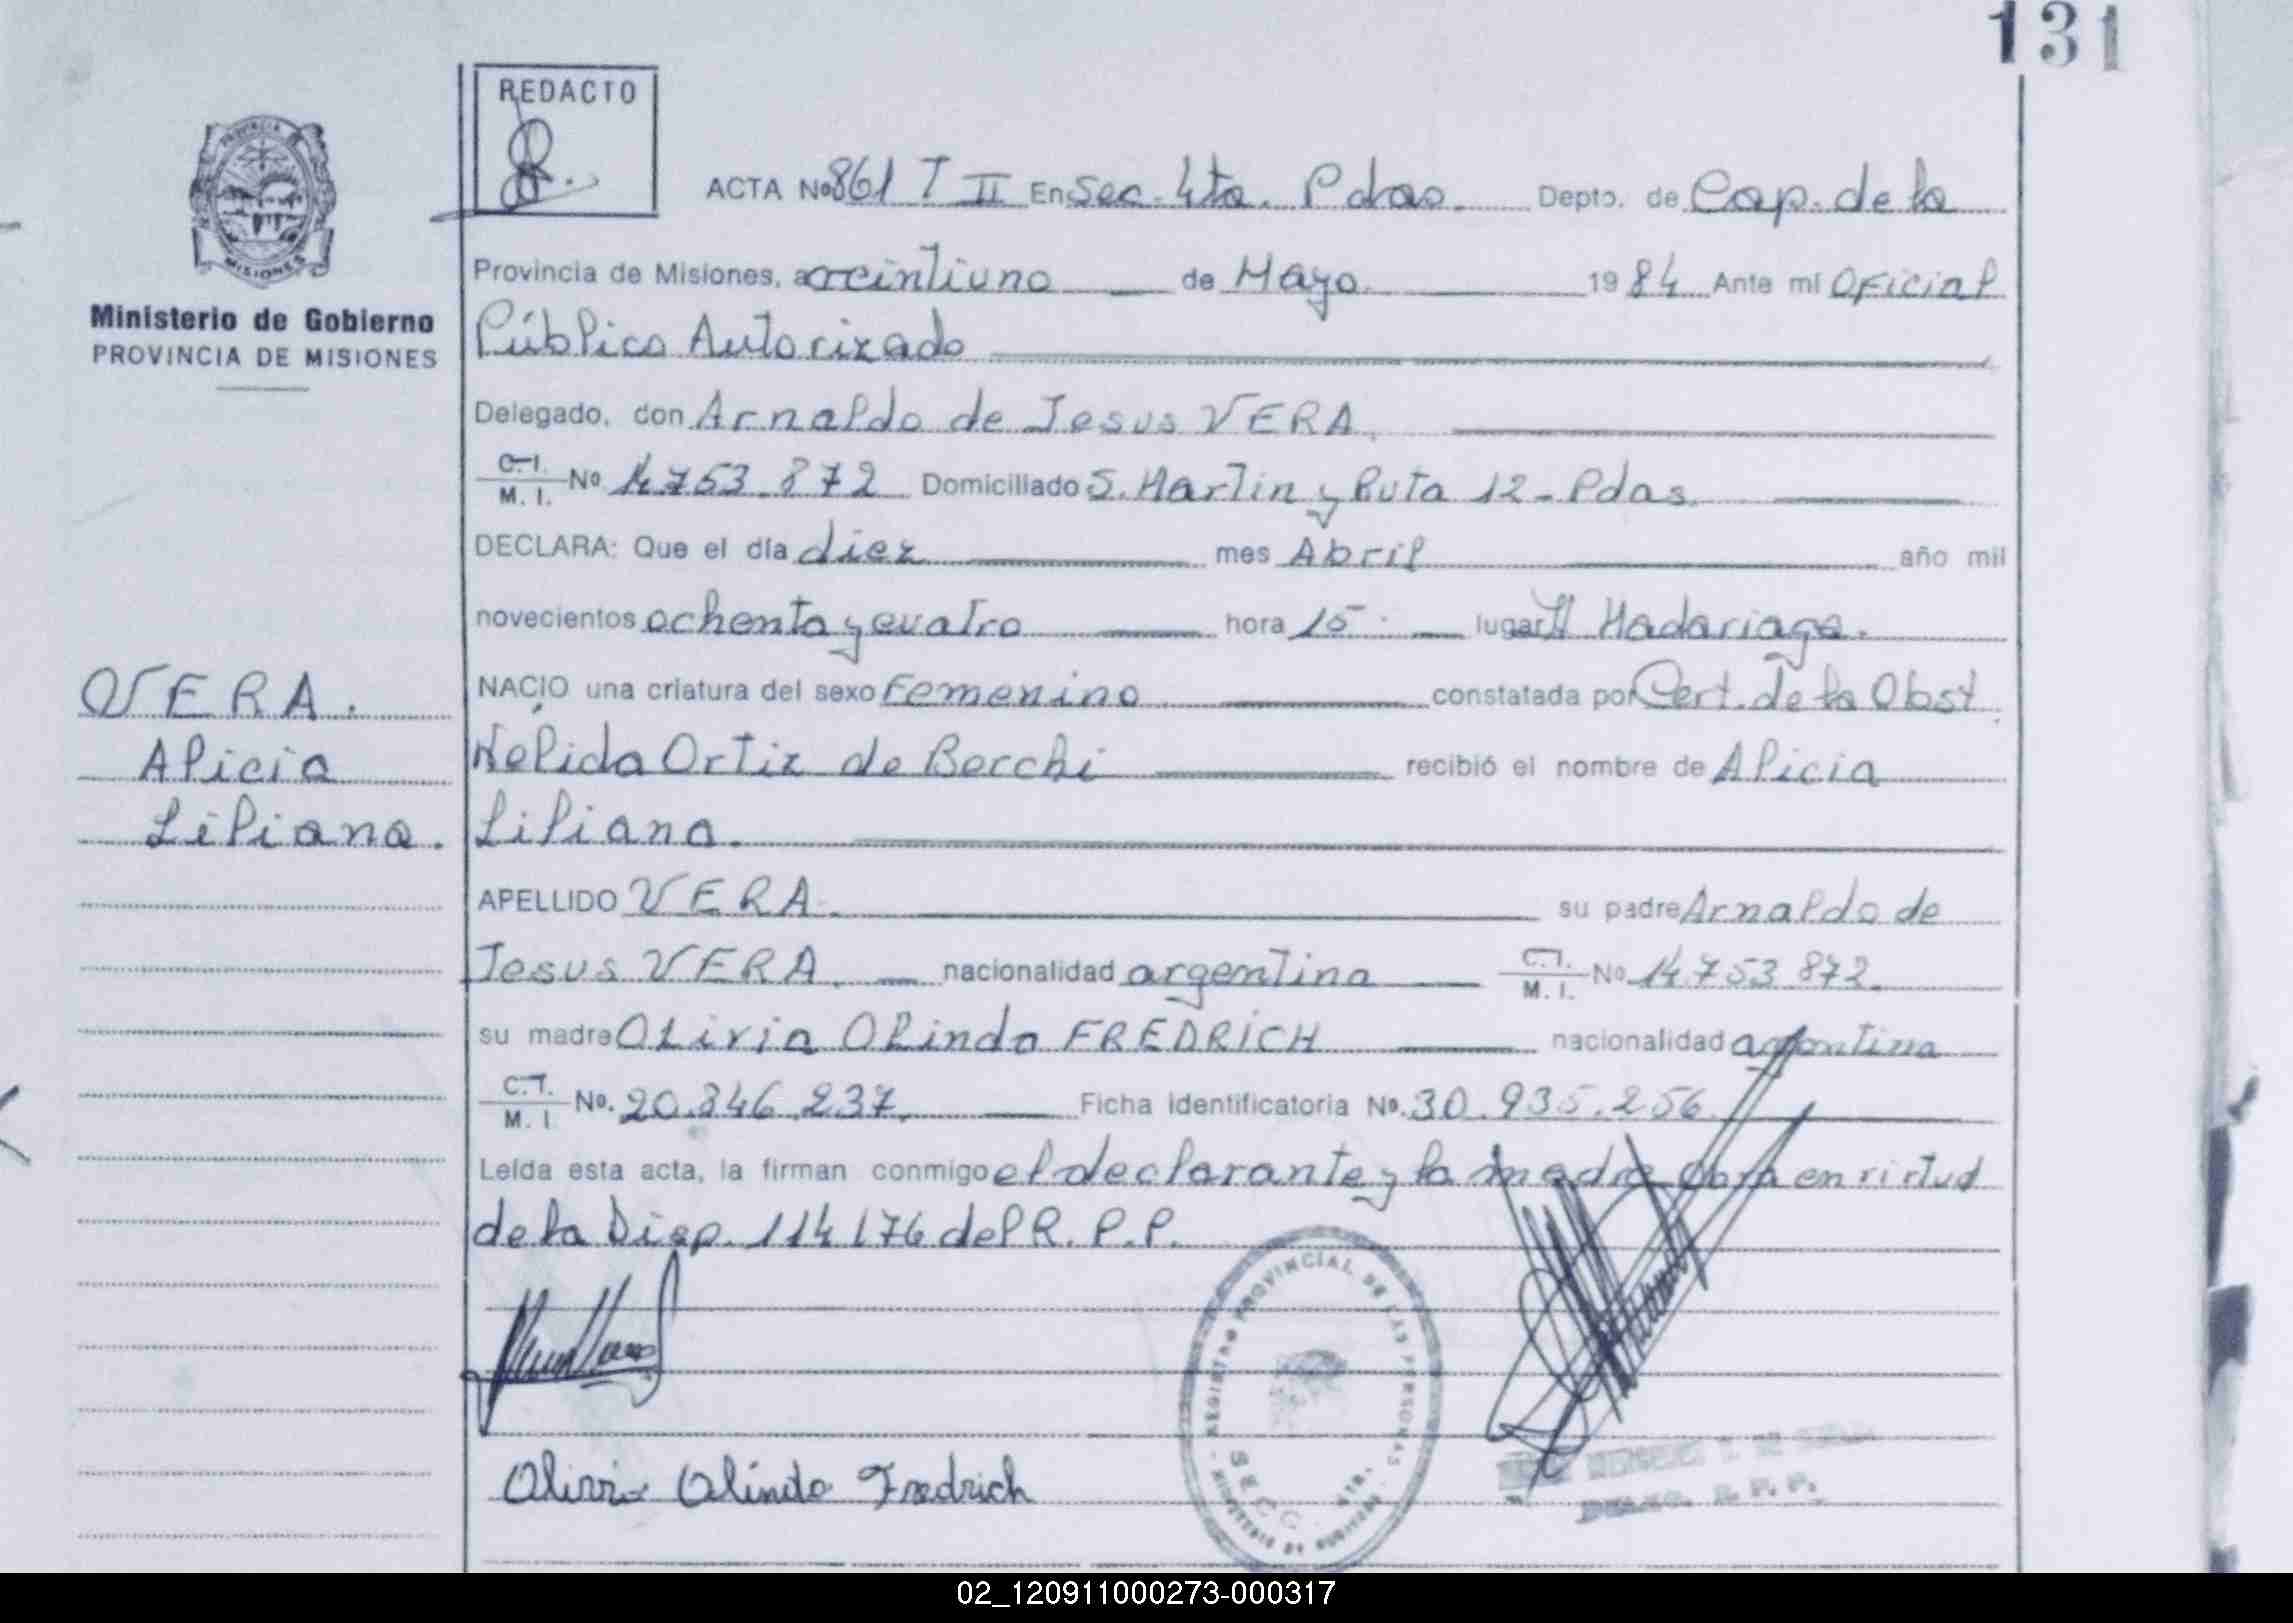 131
REDACTO
ACTA Nº 861 T II En Sec. 4ta. Pdas. Depto. de Cap. de la
Provincia de Misiones, a veintiuno de Mayo 1984 Ante mí Oficial
Público Autorizado
Delegado, don Arnaldo de Jesus VERA.
C.I. M.I. Nº 14.753.872 Domiciliado S. Martin y Ruta 12 - Pdas.
DECLARA: Que el día diez mes Abril año mil
novecientos ochenta y cuatro hora 15 lugar H Madariaga.
NACIO una criatura del sexo Femenino constatada por Cert. de la Obst.
Nelida Ortiz de Bocchi recibió el nombre de Alicia
Liliana.
APELLIDO VERA. su padre Arnaldo de
Jesus VERA. nacionalidad argentina C.I. M.I. Nº 14.753.872.
su madre Olivia Olinda FREDRICH nacionalidad argentina
C.I. M.I. Nº. 20.846.237. Ficha identificatoria Nº. 30.935.256
Leída esta acta, la firman conmigo el declarante y la madre obra en virtud
de la Disp. 114/76 del R.P.P.
Olivia Olinda Fredrich
PROVINCIA DE
MISIONES
Ministerio de Gobierno
PROVINCIA DE MISIONES
VERA.
Alicia
Liliana.
REGISTRO PROVINCIAL DE LAS PERSONAS
SECC. 4TA.
MINISTERIO DE GOBIERNO
R. P. P.
02_120911000273-000317